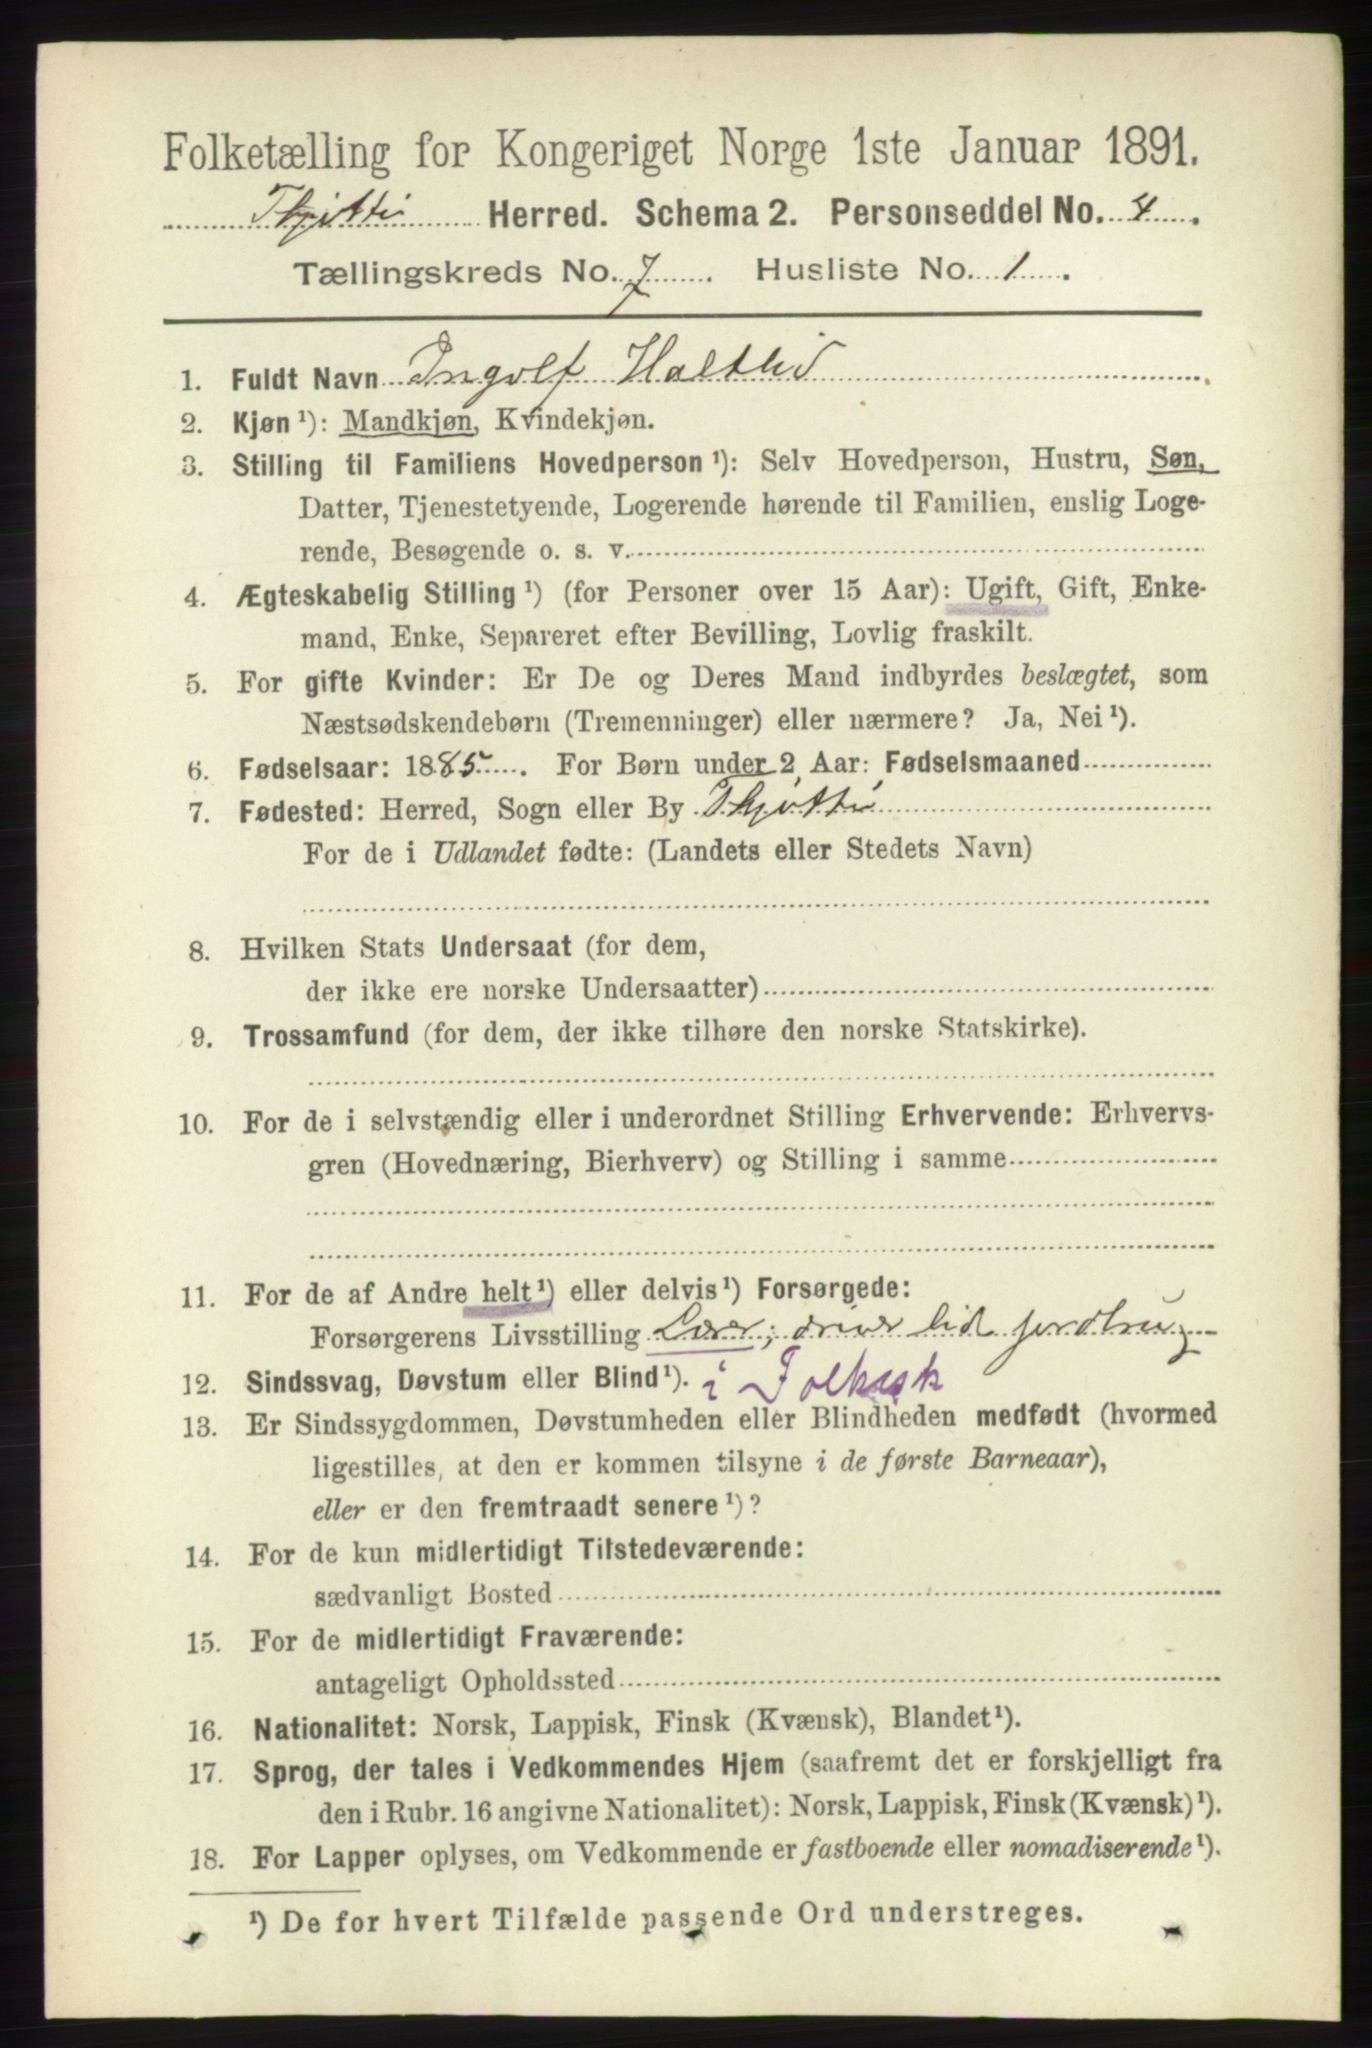 Folketælling for Kongeriget Norge 1ste Januar 1891.
Tjøtta Herred. Schema 2. Personseddel No. 4.
Tællingskreds No. 7. Husliste No. 1.
1. Fuldt Navn Ingolf Holtlid
2. Kjøn ¹): Mandkjøn, Kvindekjøn.
3. Stilling til Familiens Hovedperson ¹): Selv Hovedperson, Hustru, Søn,
Datter, Tjenestetyende, Logerende hørende til Familien, enslig Loge-
rende, Besøgende o. s. v.
4. Ægteskabelig Stilling ¹) (for Personer over 15 Aar): Ugift, Gift, Enke-
mand, Enke, Separeret efter Bevilling, Lovlig fraskilt.
5. For gifte Kvinder: Er De og Deres Mand indbyrdes beslægtet, som
Næstsødskendebørn (Tremenninger) eller nærmere? Ja, Nei ¹).
6. Fødselsaar: 1885. For Børn under 2 Aar: Fødselsmaaned
7. Fødested: Herred, Sogn eller By Tjøtta
For de i Udlandet fødte: (Landets eller Stedets Navn)
8. Hvilken Stats Undersaat (for dem,
der ikke ere norske Undersaatter)
9. Trossamfund (for dem, der ikke tilhøre den norske Statskirke).
10. For de i selvstændig eller i underordnet Stilling Erhvervende: Erhvervs-
gren (Hovednæring, Bierhverv) og Stilling i samme
11. For de af Andre helt ¹) eller delvis ¹) Forsørgede:
Forsørgerens Livsstilling Lærer; driver lid jordbrug
12. Sindssvag, Døvstum eller Blind ¹). i Folkesk
13. Er Sindssygdommen, Døvstumheden eller Blindheden medfødt (hvormed
ligestilles, at den er kommen tilsyne i de første Barneaar),
eller er den fremtraadt senere ¹)?
14. For de kun midlertidigt Tilstedeværende:
sædvanligt Bosted
15. For de midlertidigt Fraværende:
antageligt Opholdssted
16. Nationalitet: Norsk, Lappisk, Finsk (Kvænsk), Blandet ¹).
17. Sprog, der tales i Vedkommendes Hjem (saafremt det er forskjelligt fra
den i Rubr. 16 angivne Nationalitet): Norsk, Lappisk, Finsk (Kvænsk) ¹).
18. For Lapper oplyses, om Vedkommende er fastboende eller nomadiserende ¹).
¹) De for hvert Tilfælde passende Ord understreges.